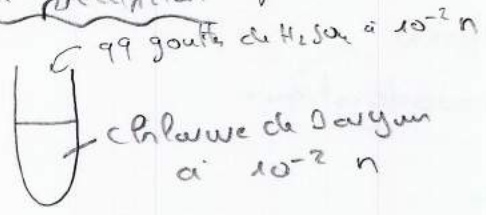 99 goutts de H₂SO₄ à 10⁻² n
chlorure de Baryum
à 10⁻² n